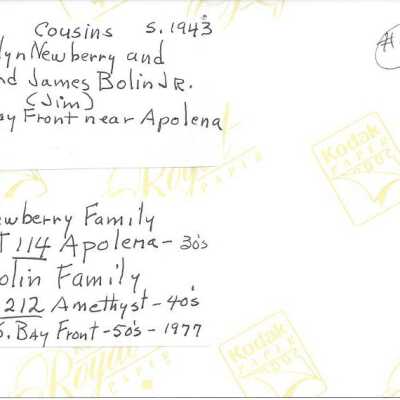 Cousins S. 1943
lyn Newberry and
nd James Bolin Jr.
(Jim)
ay Front near Apolena
#
ewberry Family
T 114 Apolena - 30's
olin Family
212 Amethyst - 40's
S. Bay Front - 50's - 1977
Kodak
PAPER
Royal
PAPER
Kodak
PAPER
Royal
PAPER